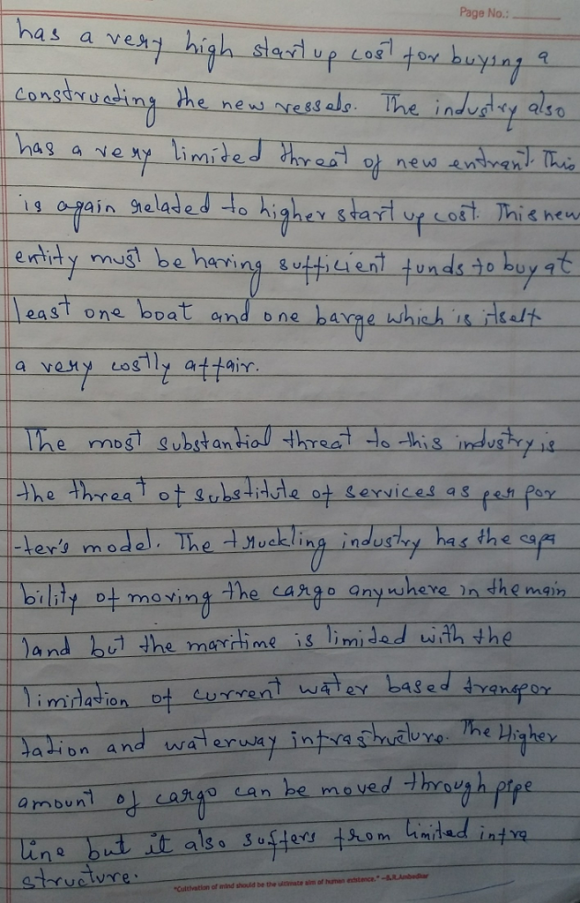 Page No.:
has a very high start up cost for buying a
constructing the new vessels. The industry also
has a very limited threat of new entrant. This
is again related to higher start up cost. This new
entity must be having sufficient funds to buy at
least one boat and one barge which is itself
a very costly affair.
The most substantial threat to this industry is
the threat of substitute of services as per por
-ter's model. The truckling industry has the capa
bility of moving the cargo anywhere in the main
land but the maritime is limited with the
limitation of current water based transpor
tation and waterway infrastructure. The Higher
amount of cargo can be moved through pipe
line but it also suffers from limited infra
structure.
"Cultivation of mind should be the ultimate aim of human existence." –B.R.Ambedkar